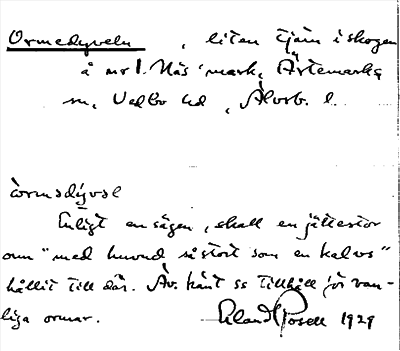 Ormedyveln, liten tjärn i skogen
å nr 1. Näs' mark, Ärtemarks
sn, Vedbo hd, Älvsb. l.
òrmadývel
Enligt en sägen, skall en jättestor
orm "med huvud så stort som en kalvs"
hållit till där. Äv. känt ss tillhåll för van-
liga ormar. Erland Rosell 1929